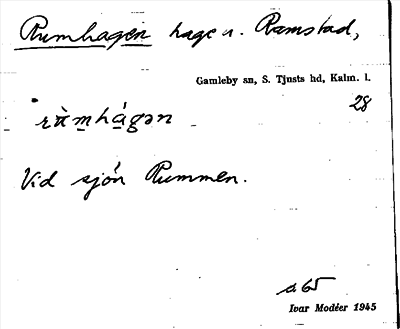 Rumhagen hage u. Ramstad,
Gamleby sn, S. Tjusts hd, Kalm. l.
28
Vid sjön Rummen.
a 65
Ivar Modéer 1945